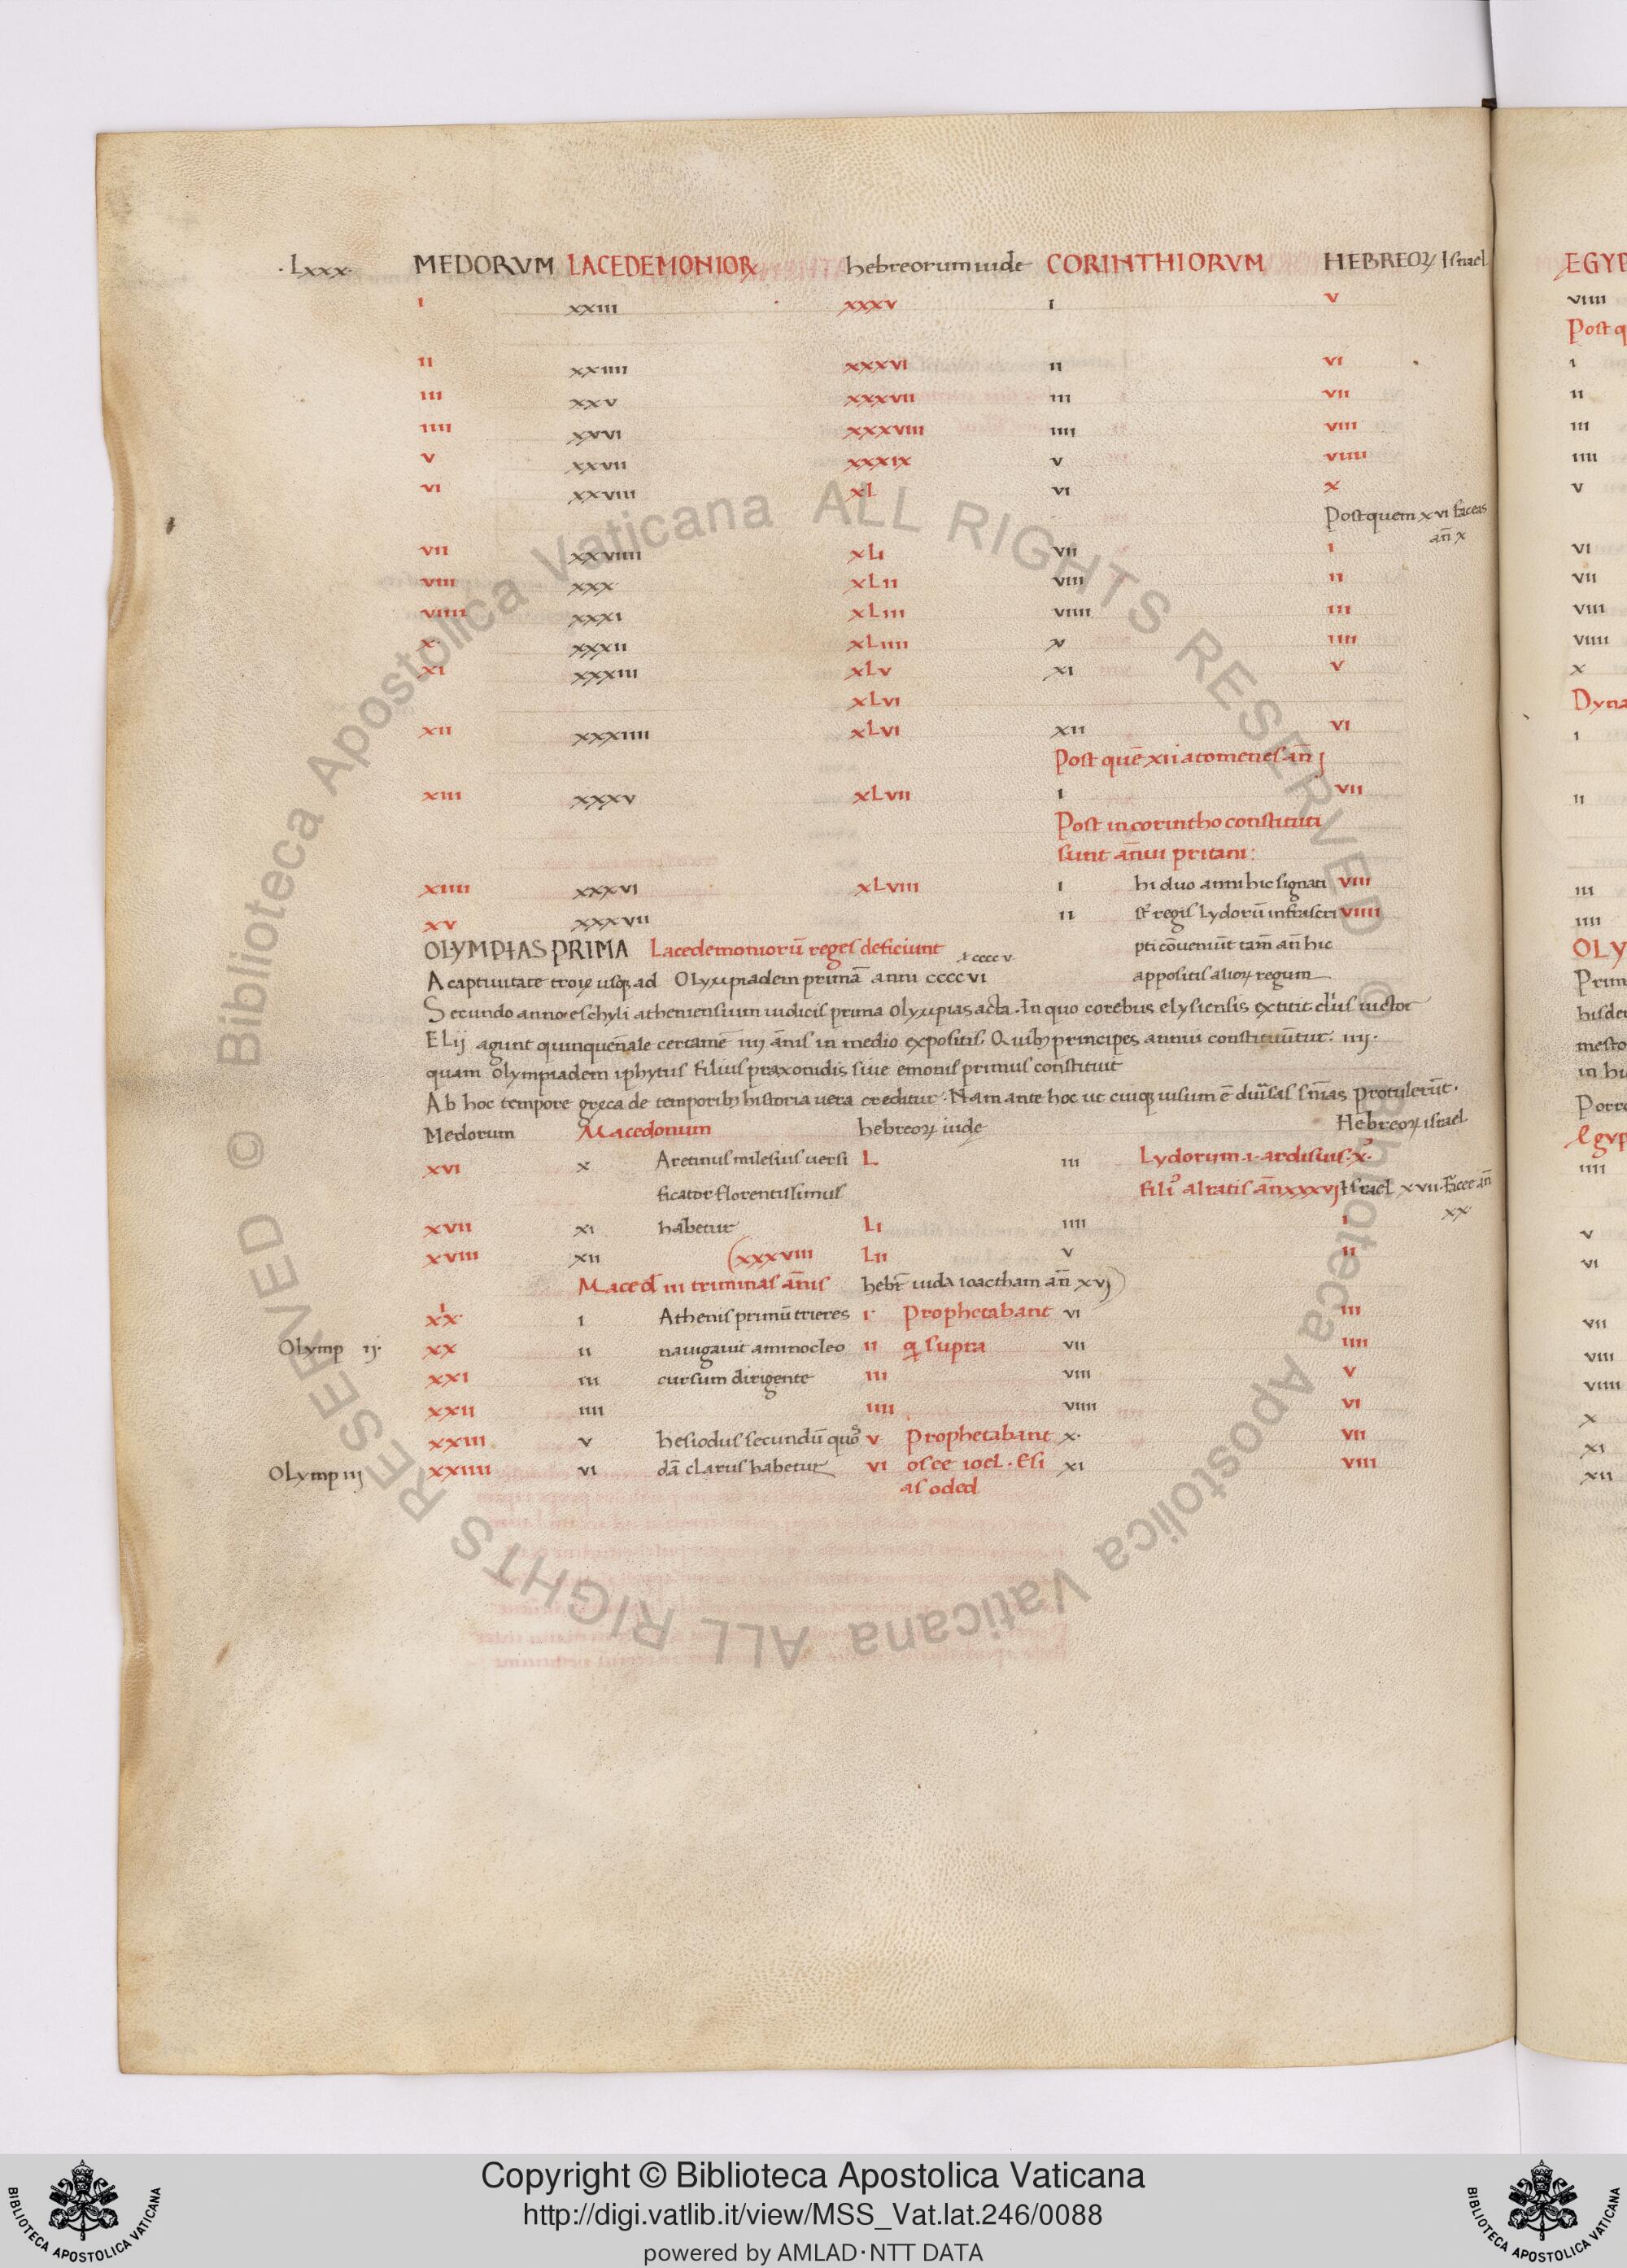 .Lxxx. MEDORVM LACEDEMONIOR hebreorum iude CORINTHIORVM HEBREOꝝ Israel EGYP
I xxiii xxxv i v viiii
Post q
II xxiiii xxxvi ii vi i
III xxv xxxvii iii vii ii
IIII xxvi xxxviii iiii viii iii
V xxvii xxxix v viiii iiii
VI xxviii xL vi x v
Post quem xvi faceas
an̄ x
VII xxviiii xLi vii i vi
VIII xxx xLii viii ii vii
VIIII xxxi xLiii viiii iii viii
X xxxii xLiiii x iiii viiii
XI xxxiii xLv xi v x
xLvi Dyna
XII xxxiiii xLvi xii vi i
Post quē xii atomenes an̄ j
XIII xxxv xLvii i vii ii
Post in corintho constituti
sunt an̄ui pritani:
XIIII xxxvi xLviii i hi duo anni hic signati viii iii
XV xxxvii ii st̄ regis Lydorū infrascri viiii iiii
OLYMPIAS PRIMA Lacedemoniorū reges deficiunt ł cccc v pti cōueniūt tam̄ an̄ hic OLY
A captiuitate troię usq; ad Olympiadem primā anni cccc vi appositis alioꝝ regum Prim
Secundo anno eschyli atheniensium iudicis prima olympias acta. In quo corebus elysiensis extitit cl̄us uictor hisde
Elij agunt quinquēnale certamē iiij an̄is in medio expositis. Quib; principes annui constituūtur. iiij. mesto
quam olympiadem iphytus filius praxonidis siue emonis primus constituit in hi
Ab hoc tempore gręca de temporib; historia uera creditur. Nam ante hoc ut cuiq; uisum ē diuūsas sn̄ias protulerūt. Porro
Medorum Macedonum hebreoꝝ iude Hebreoꝝ israel Egyp
XVI x Arctinus milesius uersi L iii Lydorum .i. ardisius .x. iiii
ficator florentissimus fili᾽ aliatis an̄ xxxvj Israel xvii. facee an̄
xx
XVII xi habetur Li iiii i v
XVIII xii (xxxviii Lii v ii vi
Maced̄ iii triminas an̄is hebr̄ iuda ioactham an̄ xvj)
xix i Athenis primū trieres i Prophetabant vi iii vii
Olymp ij. XX ii nauigauit aminocleo ii q̄ supra vii iiii viii
XXI iii cursum dirigente iii viii v viiii
XXII iiii iiii viiii vi x
XXIII v hesiodus secundū quos v Prophetabant x. vii xi
Olymp iij XXIIII vi dā clarus habetur vi osee ioel. Esi xi viii xii
as oded
Copyright © Biblioteca Apostolica Vaticana
http://digi.vatlib.it/view/MSS_Vat.lat.246/0088
powered by AMLAD·NTT DATA
BIBLIOTECA APOSTOLICA VATICANA
BIBLIOTECA APOSTOLICA VATICANA
© Biblioteca Apostolica Vaticana ALL RIGHTS RESERVED © Biblioteca Apostolica Vaticana ALL RIGHTS RESERVED